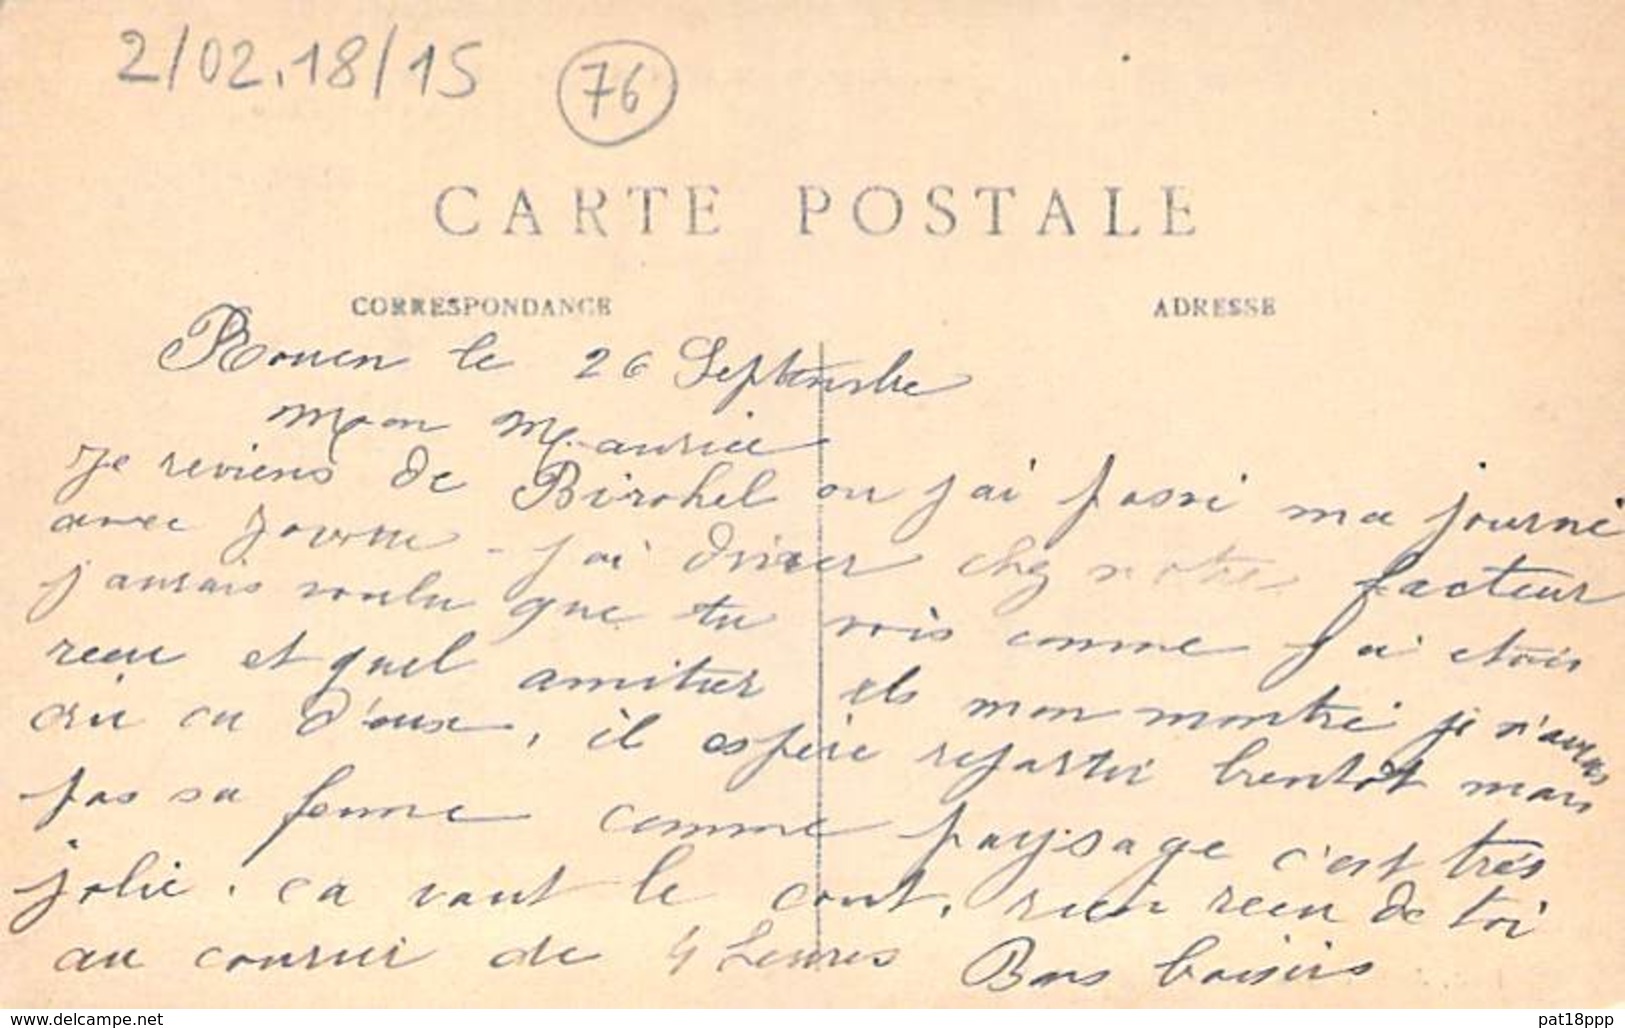 2/02.18/15
76
CARTE POSTALE
CORRESPONDANCE
ADRESSE
Rouen le 26 Septembre
Mon Maurice
Je reviens de Birohel ou j'ai passé ma journé
avec Yvonne - j'ai diner chez notre facteur
j'aurais voulu que tu vois comme j'ai etais
recu et quel amitier ils mon montré je n'aurais
cru ca d'eux, il espère repartir bientot mais
pas sa femme comme paysage c'est très
jolie. ca vaut le cout, rien recu de toi
au courrier de 4 heures Bons baisers
www.delcampe.net
pat18ppp